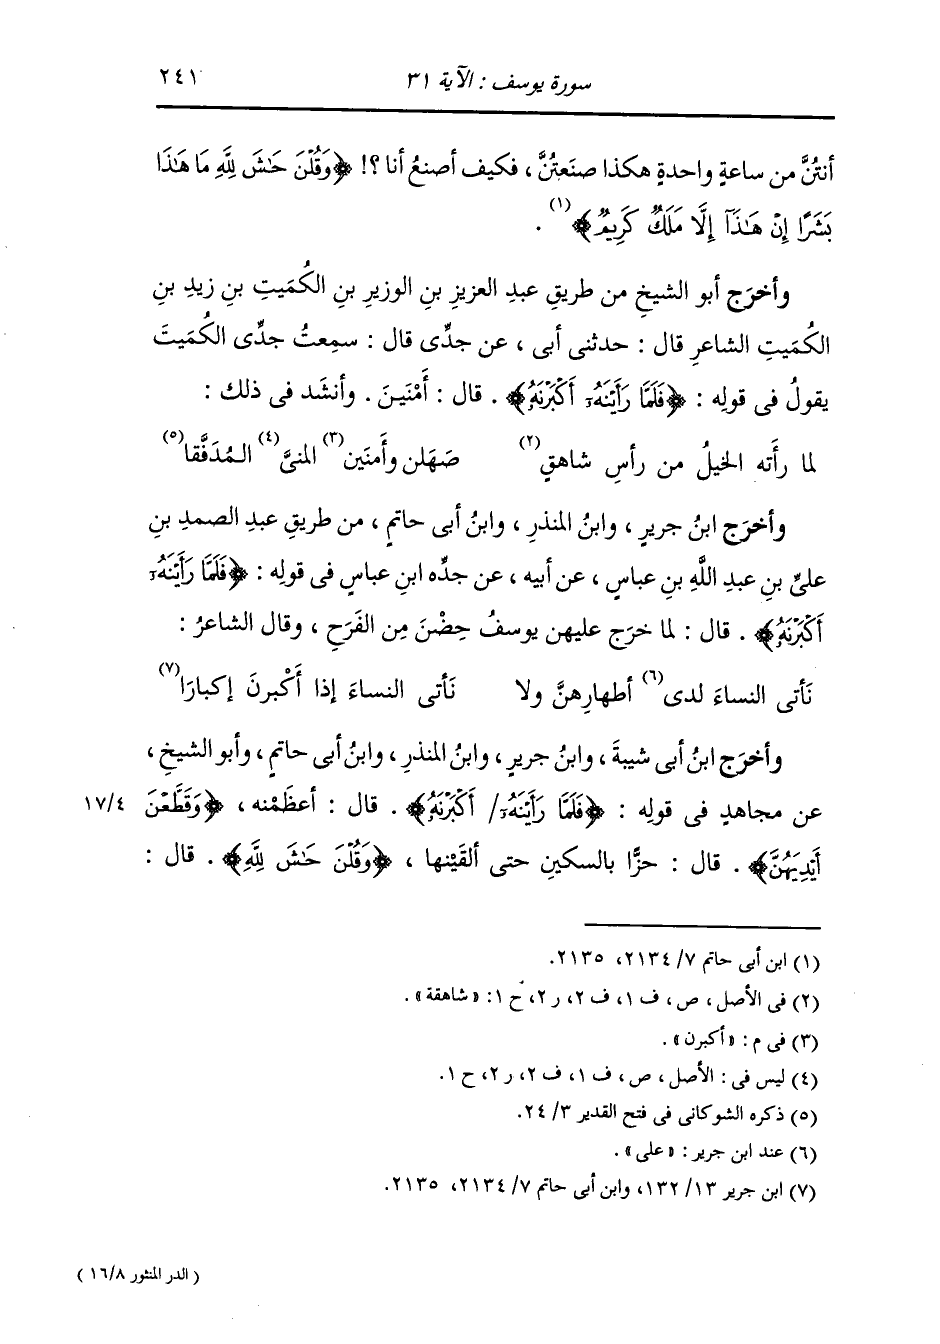 سورة يوسف : الآية ٣١ ٢٤١
أنتُنَّ من ساعةٍ واحدةٍ هكذا صنَعتُنَّ ، فكيف أصنعُ أنا ؟! ﴿وَقُلْنَ حَٰشَ لِلَّهِ مَا هَٰذَا
بَشَرًا إِنْ هَٰذَآ إِلَّا مَلَكٌ كَرِيمٌ﴾(١) .
وأخرَج أبو الشيخِ من طريقِ عبدِ العزيزِ بنِ الوزيرِ بنِ الكُمَيتِ بنِ زيدِ بنِ
الكُمَيتِ الشاعرِ قال : حدثنى أبى ، عن جدِّى قال : سمِعتُ جدِّى الكُمَيتَ
يقولُ فى قولِه : ﴿فَلَمَّا رَأَيْنَهُۥٓ أَكْبَرْنَهُۥ﴾ . قال : أَمْنَينَ . وأنشَد فى ذلك :
لما رأَته الخيلُ من رأسِ شاهقٍ(٢) صَهَلن وأَمنَين(٣) المنىَّ(٤) المُدَفَّقا(٥)
وأخرَج ابنُ جريرٍ ، وابنُ المنذرِ ، وابنُ أبى حاتمٍ ، من طريقِ عبدِ الصمدِ بنِ
علىِّ بنِ عبدِ اللَّهِ بنِ عباسٍ ، عن أبيه ، عن جدِّه ابنِ عباسٍ فى قولِه : ﴿فَلَمَّا رَأَيْنَهُۥٓ
أَكْبَرْنَهُۥ﴾ . قال : لما خرَج عليهن يوسفُ حِضْنَ مِن الفَرَحِ ، وقال الشاعرُ :
نَأتى النساءَ لدى(٦) أطهارِهنَّ ولا نَأتى النساءَ إذا أَكْبرنَ إكبارَا(٧)
وأخرَج ابنُ أبى شيبةَ ، وابنُ جريرٍ ، وابنُ المنذرِ ، وابنُ أبى حاتمٍ ، وأبو الشيخِ ،
عن مجاهدٍ فى قولِه : ﴿فَلَمَّا رَأَيْنَهُۥٓ/ أَكْبَرْنَهُۥ﴾ . قال : أعظَمْنه ، ﴿وَقَطَّعْنَ ١٧/٤
أَيْدِيَهُنَّ﴾ . قال : حزًّا بالسكينِ حتى ألقَيْنها ، ﴿وَقُلْنَ حَٰشَ لِلَّهِ﴾ . قال :
(١) ابن أبى حاتم ٧/ ٢١٣٤، ٢١٣٥.
(٢) فى الأصل ، ص ، ف ١، ف ٢، ر ٢، ح ١: «شاهقة» .
(٣) فى م : «أكبرن» .
(٤) ليس فى : الأصل ، ص ، ف ١، ف ٢، ر ٢، ح ١.
(٥) ذكره الشوكانى فى فتح القدير ٣/ ٢٤.
(٦) عند ابن جرير : «على» .
(٧) ابن جرير ١٣/ ١٣٢، وابن أبى حاتم ٧/ ٢١٣٤، ٢١٣٥.
( الدر المنثور ١٦/٨ )